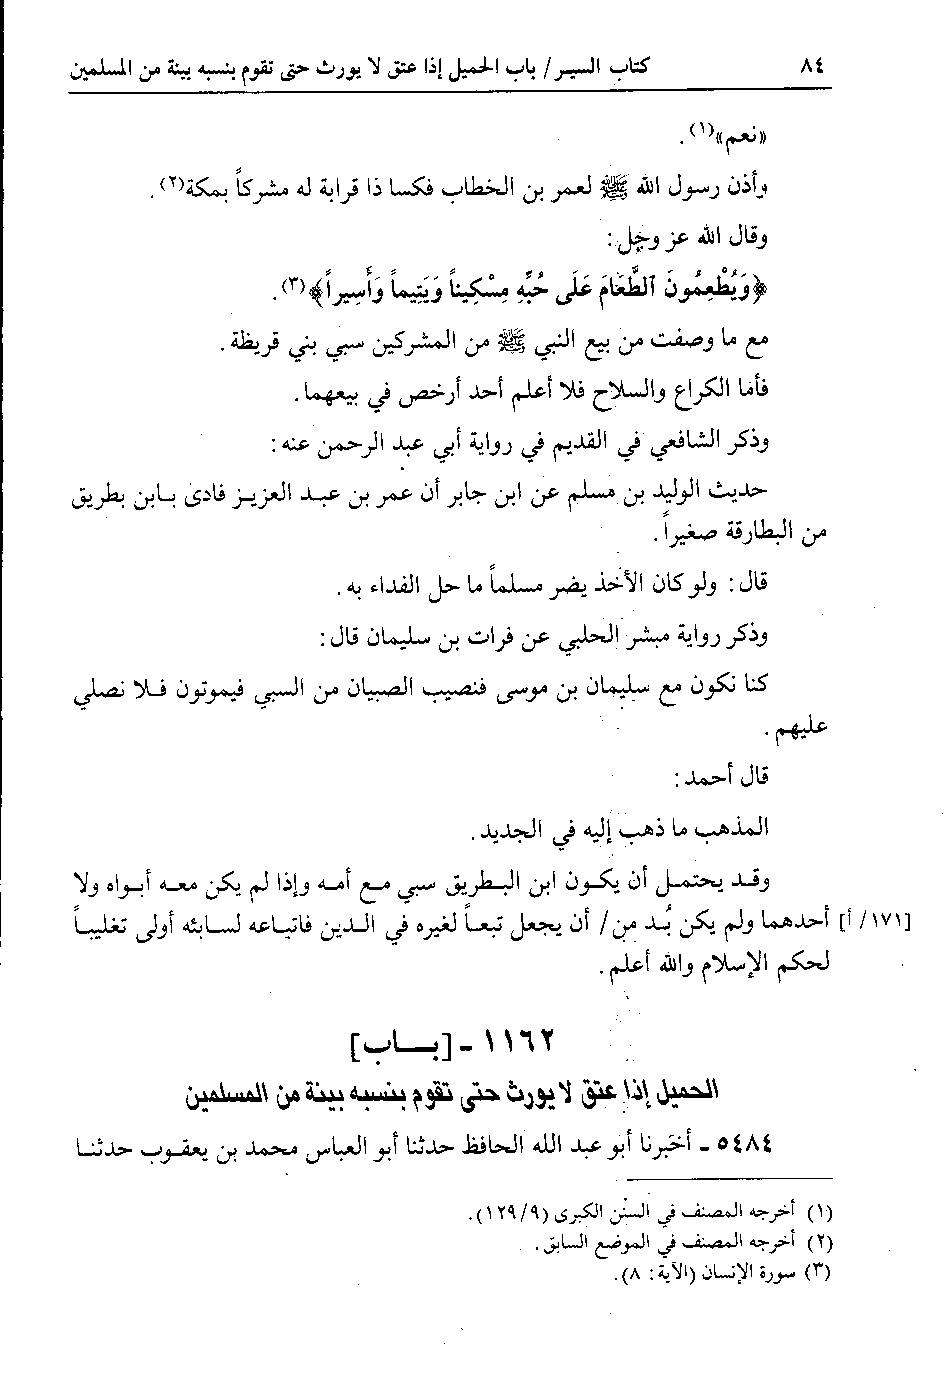 ٨٤ كتاب السير / باب الحميل إذا عتق لا يورث حتى تقوم بنسبه بينة من المسلمين
«نعم»(١).
وأذن رسول الله ﷺ لعمر بن الخطاب فكسا ذا قرابة له مشركاً بمكة(٢).
وقال الله عز وجل:
﴿وَيُطْعِمُونَ ٱلطَّعَامَ عَلَى حُبِّهِ مِسْكِيناً وَيَتِيماً وَأَسِيراً﴾(٣).
مع ما وصفت من بيع النبي ﷺ من المشركين سبي بني قريظة.
فأما الكراع والسلاح فلا أعلم أحد أرخص في بيعهما.
وذكر الشافعي في القديم في رواية أبي عبد الرحمن عنه:
حديث الوليد بن مسلم عن ابن جابر أن عمر بن عبد العزيز فادى بابن بطريق
من البطارقة صغيراً.
قال: ولو كان الأخذ يضر مسلماً ما حل الفداء به.
وذكر رواية مبشر الحلبي عن فرات بن سليمان قال:
كنا نكون مع سليمان بن موسى فنصيب الصبيان من السبي فيموتون فلا نصلي
عليهم.
قال أحمد:
المذهب ما ذهب إليه في الجديد.
وقد يحتمل أن يكون ابن البطريق سبي مع أمه وإذا لم يكن معه أبواه ولا
[١٧١/ أ] أحدهما ولم يكن بُد من/ أن يجعل تبعاً لغيره في الدين فاتباعه لسابئه أولى تغليباً
لحكم الإسلام والله أعلم.
١١٦٢ - [باب]
الحميل إذا عتق لا يورث حتى تقوم بنسبه بينة من المسلمين
٥٤٨٤ - أخبرنا أبو عبد الله الحافظ حدثنا أبو العباس محمد بن يعقوب حدثنا
(١) أخرجه المصنف في السنن الكبرى (١٢٩/٩).
(٢) أخرجه المصنف في الموضع السابق.
(٣) سورة الإنسان (الآية: ٨).